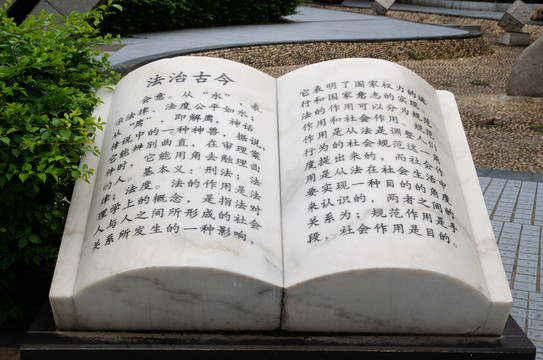 法治古今
会意。从“水”，表
示法律、法度公平如水；
从“廌”，即解廌，神话
传说中的一种神兽，据说，
它能辨别曲直，在审理案
件时，它能用角去触理曲
的人。基本义：刑法；法
律；法度。法的作用是法
理学上的概念，是指法对
人与人之间所形成的社会
关系所发生的一种影响，
它表明了国家权力的运
行和国家意志的实现。
法的作用可以分为规范
作用和社会作用。规范
作用是从法是调整人们
行为的社会规范这一角
度提出来的，而社会作
用是从法在社会生活中
要实现一种目的的角度
来认识的，两者之间的
关系为：规范作用是手
段，社会作用是目的。